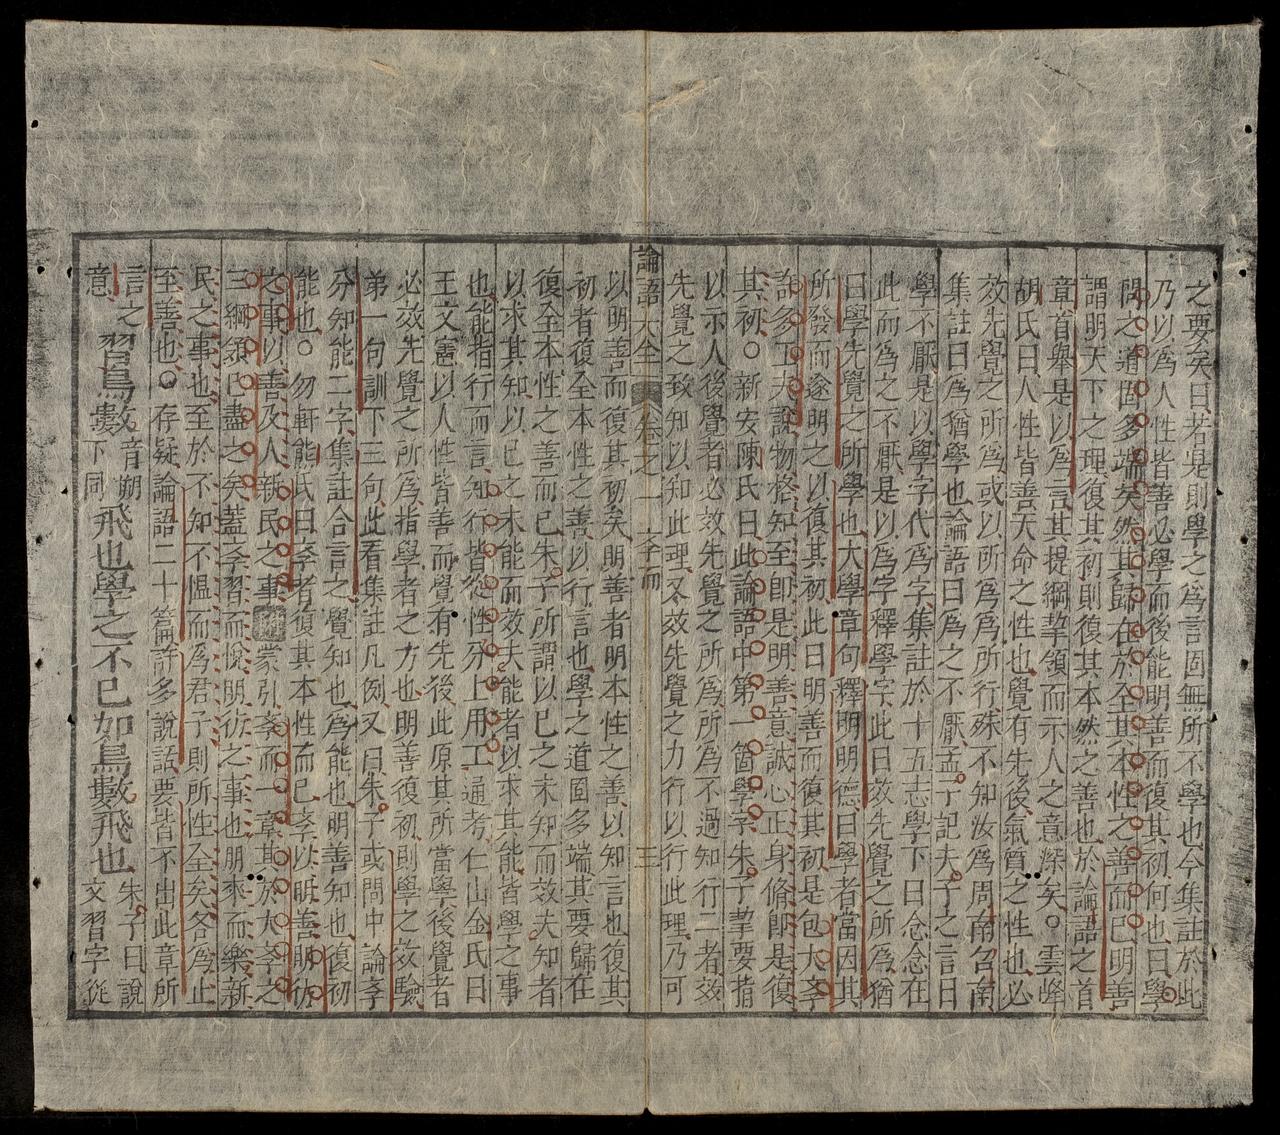 之要矣曰若是則學之爲言固無所不學也今集註於此
乃以爲人性皆善必學而後能明善而復其初何也曰學
問之道固多端矣然其歸在於至其本性之善而已明善
謂明天下之理復其初則復其本然之善也於論語之首
章首舉是以爲言其提綱挈領而示人之意深矣○雲峰
胡氏曰人性皆善天命之性也覺有先後氣質之性也必
效先覺之所爲或以所爲爲所行殊不知汝爲周南召南
集註曰爲猶學也論語曰爲之不厭孟子記夫子之言曰
學不厭是以學字代爲字集註於十五志學下曰念念在
此而爲之不厭是以爲字釋學字此曰效先覺之所爲猶
曰學先覺之所學也大學章句釋明明德曰學者當因其
所發而遂明之以復其初此曰明善而復其初是包大斈
許多工夫說物格知至即是明善意誠心正身脩即是復
其初○新安陳氏曰此論語中第一箇學字朱子挈要指
以示人後覺者必效先覺之所爲所爲不過知行二者效
先覺之致知以知此理又效先覺之力行以行此理乃可
論語大全 卷之一 斈而 三
以明善而復其初矣明善者明本性之善以知言也復其
初者復全本性之善以行言也學之道固多端其要歸在
復全本性之善而已朱子所謂以已之未知而效夫知者
以求其知以已之未能而效夫能者以求其能皆學之事
也能指行而言知行皆從性分上用工 通考仁山金氏曰
王文憲以人性皆善而覺有先後此原其所當學後覺者
必效先覺之所爲指學者之方也明善復初則學之效驗
弟一句訓下三句此看集註凡例又曰朱子或問中論斈
分知能二字集註合言之覺知也爲能也明善知也復初
能也○勿軒熊氏曰斈者復其本性而已斈以明善明彷
之事以善及人新民之事 蒙引斈而一章其於大斈之
三綱領已盡之矣蓋斈習而悅明彷之事也朋來而樂新
民之事也至於不知不慍而爲君子則所性全矣各爲止
至善也○存疑論語二十篇許多說話要皆不出此章所
言之意 習鳥數音朔下同飛也學之不已如鳥數飛也 朱子曰說文習字從